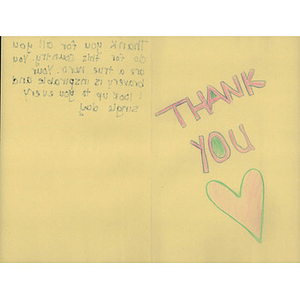 Thank you for all you
do for this country. You
are a true hero. Your
bravery is inspirable and
I look up to you every
single day
THANK
YOU